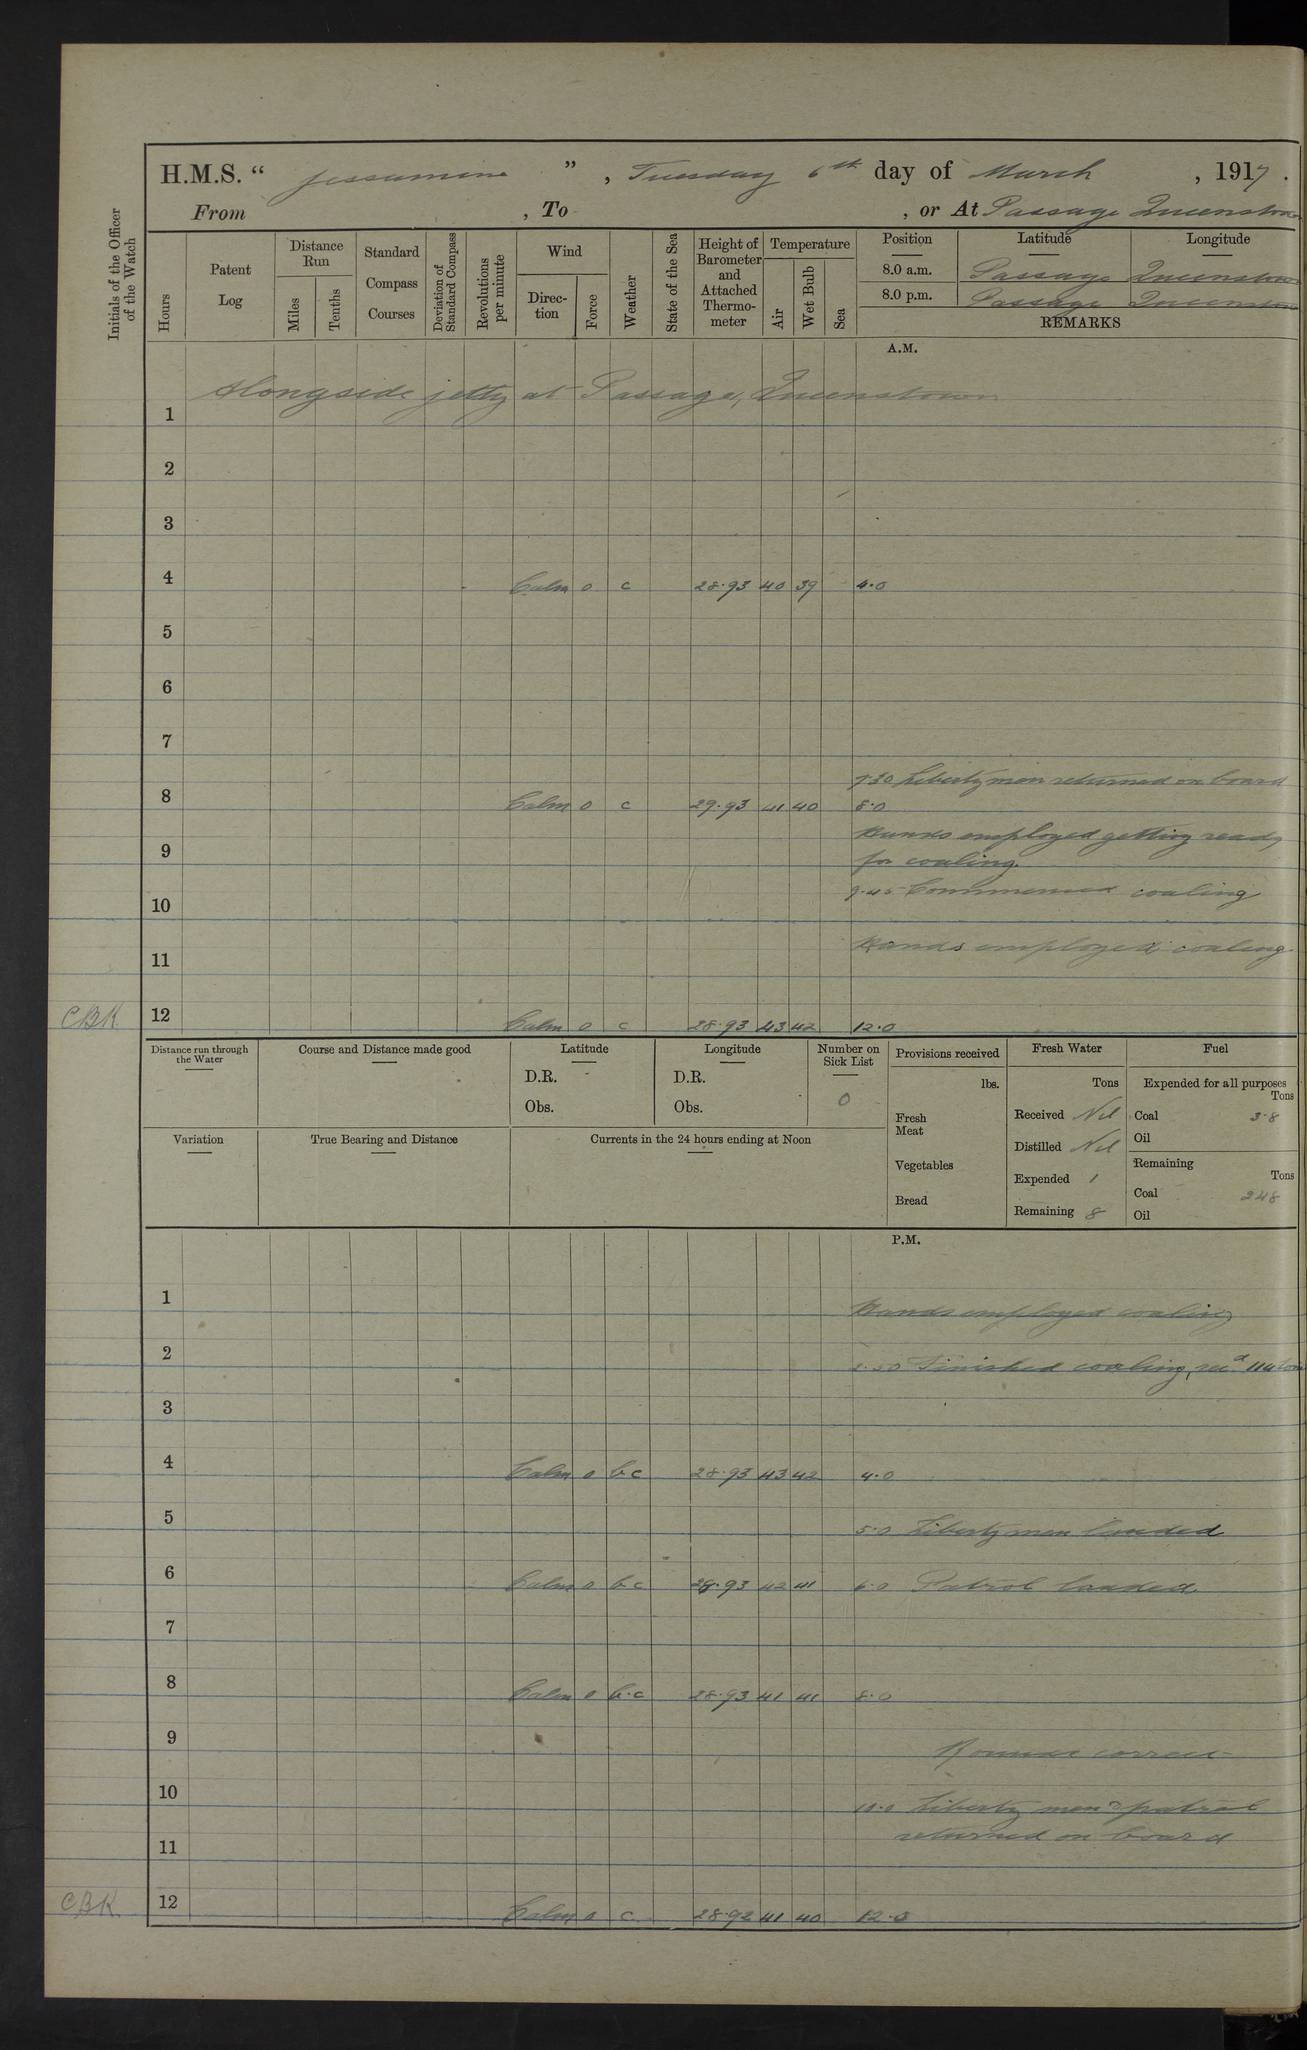 H.M.S. "Jessamine", Tuesday 6th day of March, 1917.
From , To , or At Passage Queenstown
Initials of the Officer of the Watch
Hours
Patent Log
Distance Run
Miles
Tenths
Standard Compass Courses
Deviation of Standard Compass
Revolutions per minute
Wind
Direc-tion
Force
Weather
State of the Sea
Height of Barometer and Attached Thermo-meter
Temperature
Air
Wet Bulb
Sea
Position Latitude Longitude
8.0 a.m. Passage Queenstown
8.0 p.m. Passage Queenstown
REMARKS
A.M.
Alongside jetty at Passage, Queenstown
1
2
3
4 Calm 0 c 28.93 40 39 4.0
5
6
7
7.30 Liberty men returned on board
8 Calm 0 c 29.93 41 40 8.0
Hands employed getting ready
9 for coaling.
9.45 Commenced coaling
10
Hands employed coaling
11
CBK 12 Calm 0 c 28.93 43 42 12.0
Distance run through the Water
Course and Distance made good
Latitude
D.R.
Obs.
Longitude
D.R.
Obs.
Number on Sick List
0
Provisions received
lbs.
Fresh Meat
Vegetables
Bread
Fresh Water
Tons
Received Nil
Distilled Nil
Expended 1
Remaining 8
Fuel
Expended for all purposes
Tons
Coal 3.8
Oil
Remaining
Tons
Coal 248
Oil
Variation
True Bearing and Distance
Currents in the 24 hours ending at Noon
P.M.
1 Hands employed coaling
2 Finished coaling, recd 114 tons
3
4 Calm 0 b.c 28.93 43 42 4.0
5 5.0 Liberty men landed
6 Calm 0 b.c 28.93 42 41 6.0 Patrol landed
7
8 Calm 0 b.c 28.93 41 41 8.0
9 Rounds correct
10 10.0 Liberty men & patrol
returned on board
11
CBK 12 Calm 0 c 28.92 41 40 12.0